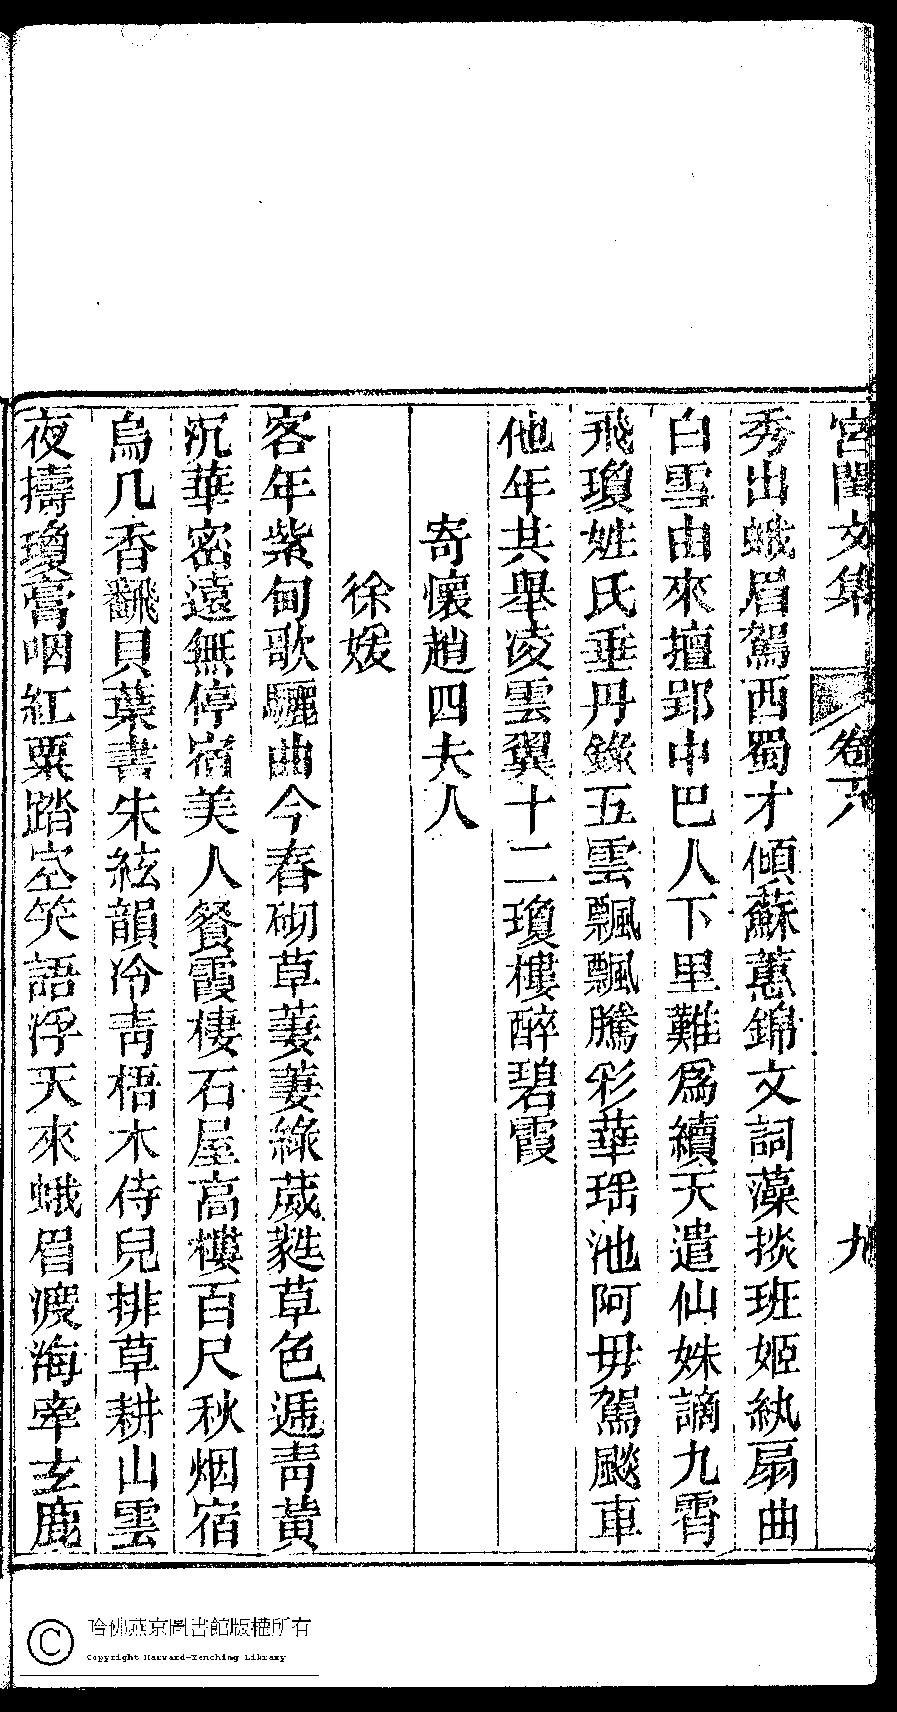 宮閨文集 卷六 九
秀出蛾眉駕西蜀才傾蘇蕙錦文詞藻掞班姬紈扇曲
白雪由來擅郢中巴人下里難爲續天遣仙姝謫九霄
飛瓊姓氏垂丹錄五雲飄飄騰彩華瑶池阿毋駕飈車
他年共舉凌雲翼十二瓊樓醉碧霞
寄懷趙四夫人
徐媛
客年紫甸歌驪曲今春砌草萋萋綠葳蕤草色遞靑黃
沉華密遠無停宿美人餐霞棲石屋高樓百尺秋烟宿
烏几香翻貝葉書朱絃韻冷靑梧木侍兒排草耕山雲
夜擣瓊膏咽紅粟踏空笑語浮天來蛾眉渡海牽玄鹿
哈佛燕京圖書館版權所有
Copyright Harvard-Yenching Library